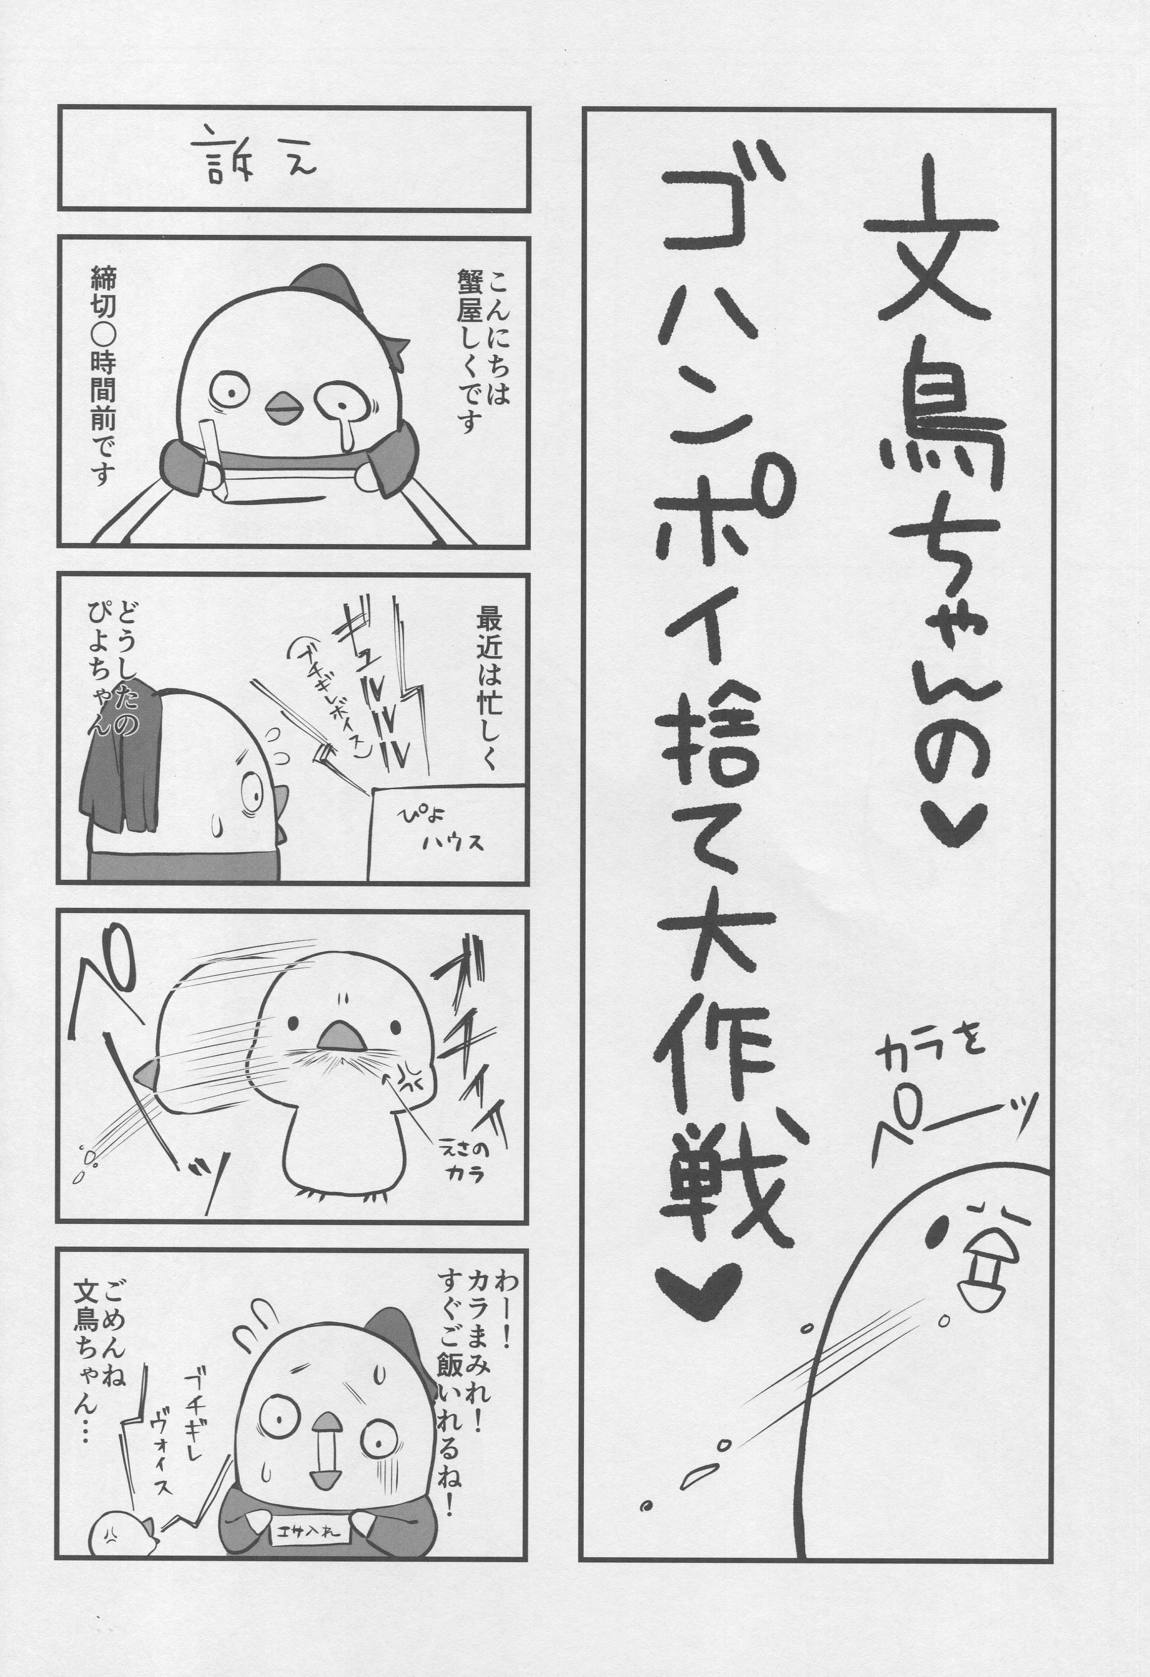 文鳥ちゃんの♥
ゴハンポイ捨て大作戦♥
カラを
ペーッ
訴え
こんにちは
蟹屋しくです
締切〇時間前です
最近は忙しく
ギュルルルル
(ブチギレボイス)
ぴよ
ハウス
どうしたの
ぴよちゃん
ペーッ
えさの
カラ
わー!
カラまみれ!
すぐご飯いれるね!
エサ入れ
ブチギレ
ヴォイス
ごめんね
文鳥ちゃん…